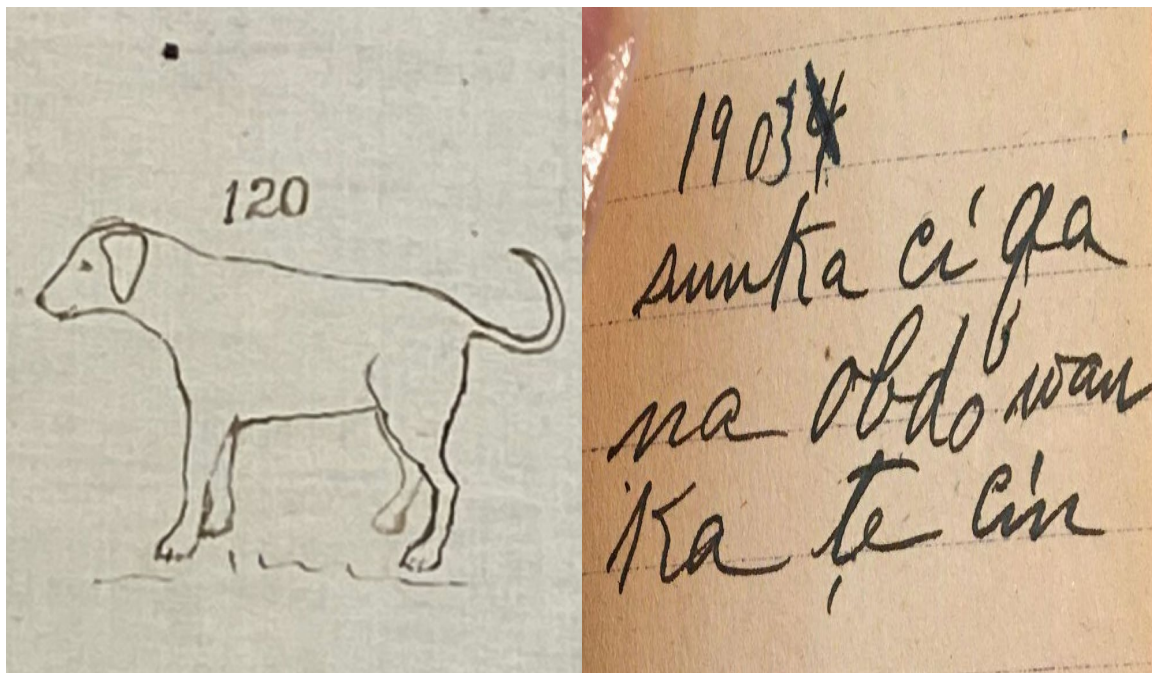 120
1903
sunka ciqa
na obdo wan
Ka te cin